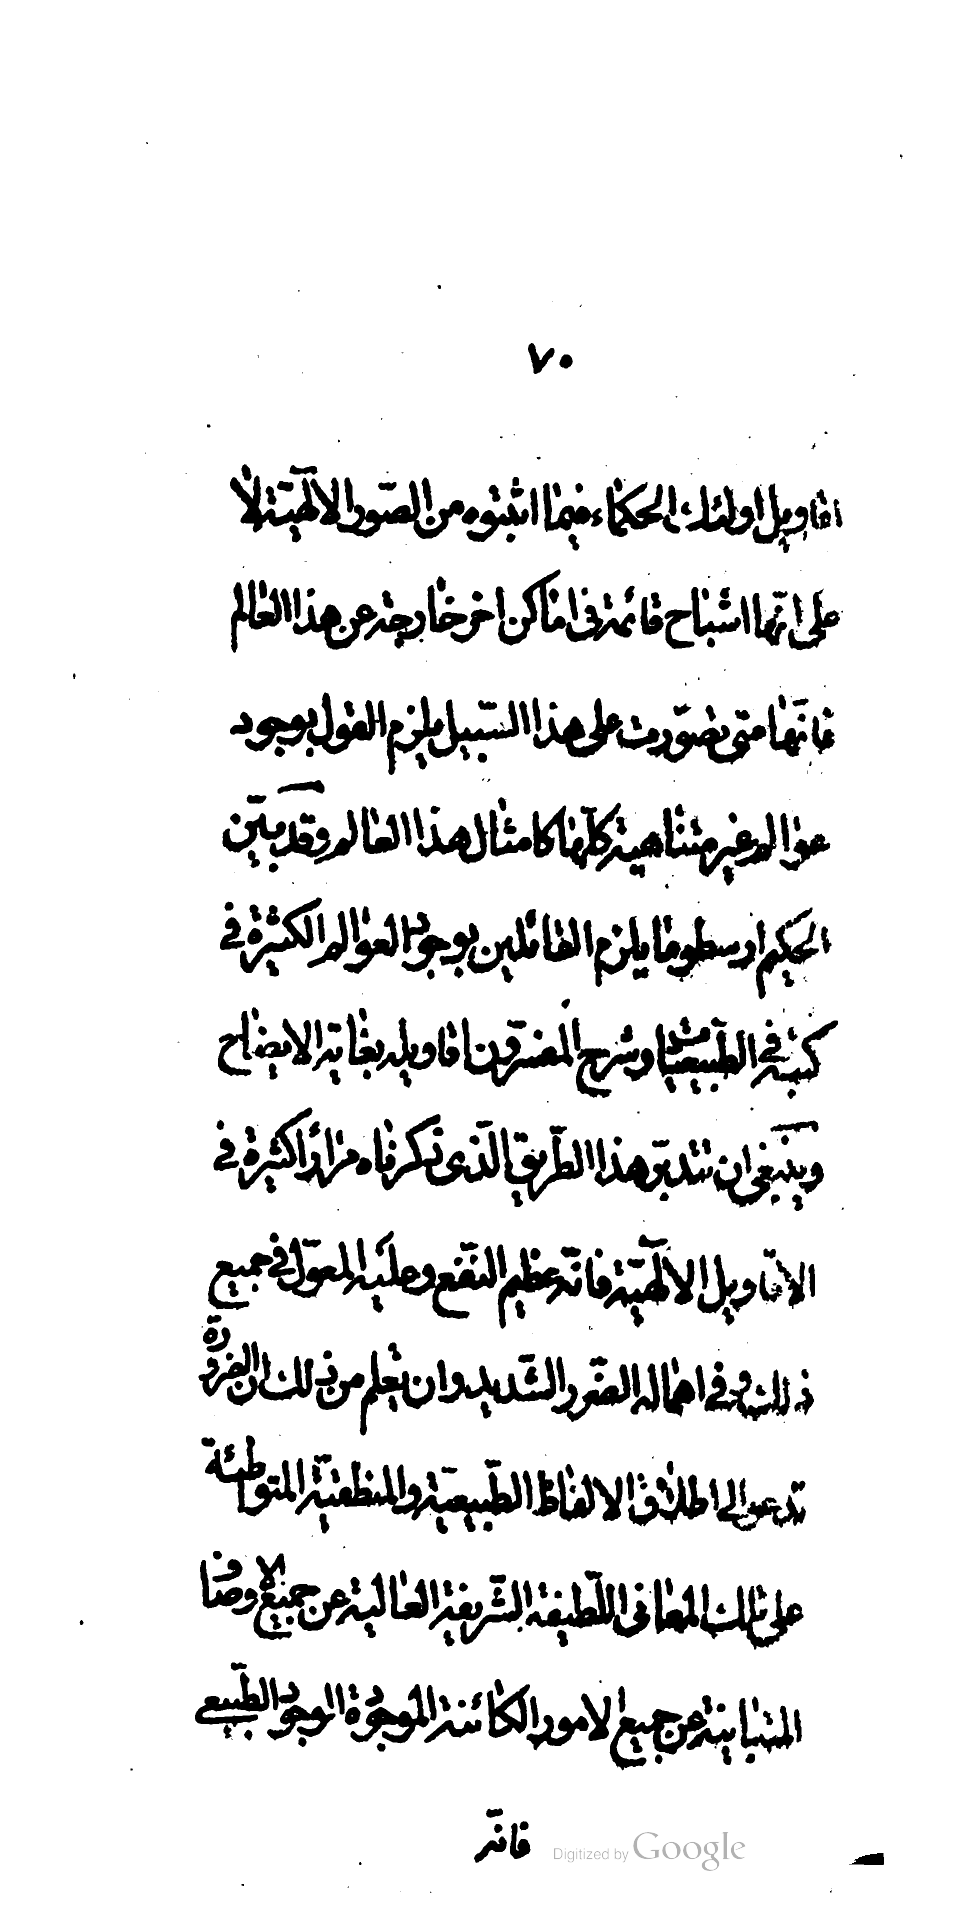 ٧٠
اقاويل اولئك الحكماء فيما اثبتوه من الصّور الالٓهيّة لا
على انّها اشباح قائمة فى اماكن اخر خارجة عن هذا العالم
فانّها متى تصوّرت على هذا السّبيل يلزم القول بوجود
عوالم غير متناهية كلّها كامثال هذا العالم وقد بيّن
الحكيم ارسطو ما يلزم القائلين بوجود العوالم الكثيرة فى
كتبه فى الطّبيعيّات وشرح المفسّرون اقاويله بغاية الايضاح
وينبغى ان تتدبّر هذا الطّريق الّذى ذكرناه مرارًا كثيرة فى
الاقاويل الالٓهيّة فانّه عظيم النّفع وعليه المعوّل فى جميع
ذلك وفى اهماله الضّرر الشّديد وان تعلم من ذلك انّ الضرورة
تدعو الى اطلاق الالفاظ الطّبيعيّة والمنطقيّة المتوطئة
على تلك المعانى اللّطيفة الشّريفة العالية عن جميع الاوصاف
المتباينة عن جميع الامور الكائنة الموجودة الوجود الطّبيعى
فانّه
Digitized by Google